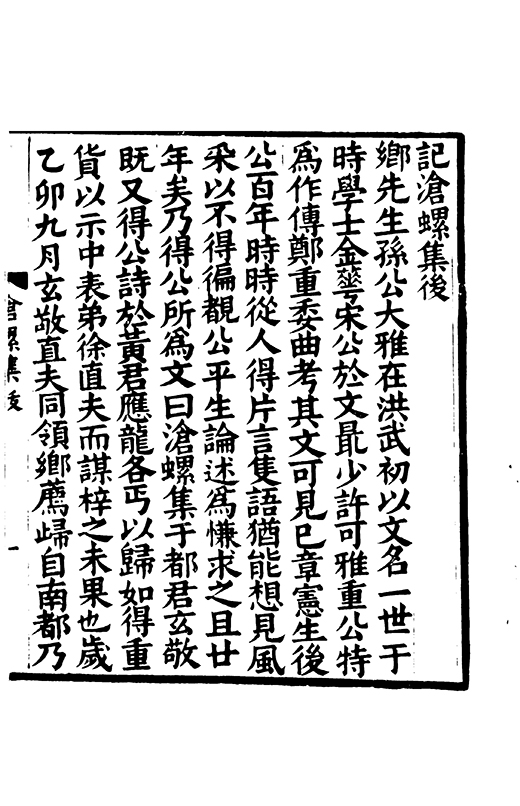 記滄螺集後
鄉先生孫公大雅在洪武初以文名一世于
時學士金華宋公於文最少許可雅重公特
爲作傳鄭重委曲考其文可見巳章憲生後
公百年時時從人得片言隻語猶能想見風
采以不得徧覩公平生論述爲慊求之且廿
年矣乃得公所爲文曰滄螺集于都君玄敬
既又得公詩於黃君應龍各丐以歸如得重
貨以示中表弟徐直夫而謀梓之未果也歲
乙卯九月玄敬直夫同領鄉薦歸自南都乃
滄螺集後
一